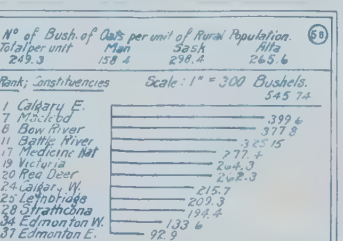 58
Nº of Bush. of Oats per unit of Rural Population.
Total per unit Man Sask Alta
249.3 158.4 298.4 265.6
Rank; Constituencies Scale: 1" = 300 Bushels.
545.74
1 Calgary E.
7 Macleod 399.6
8 Bow River 377.8
11 Battle River 325.15
17 Medicine Hat 277.4
19 Victoria 264.3
20 Red Deer 262.3
24 Calgary W. 215.7
25 Lethbridge 209.3
28 Strathcona 194.4
34 Edmonton W. 133.6
37 Edmonton E. 92.9